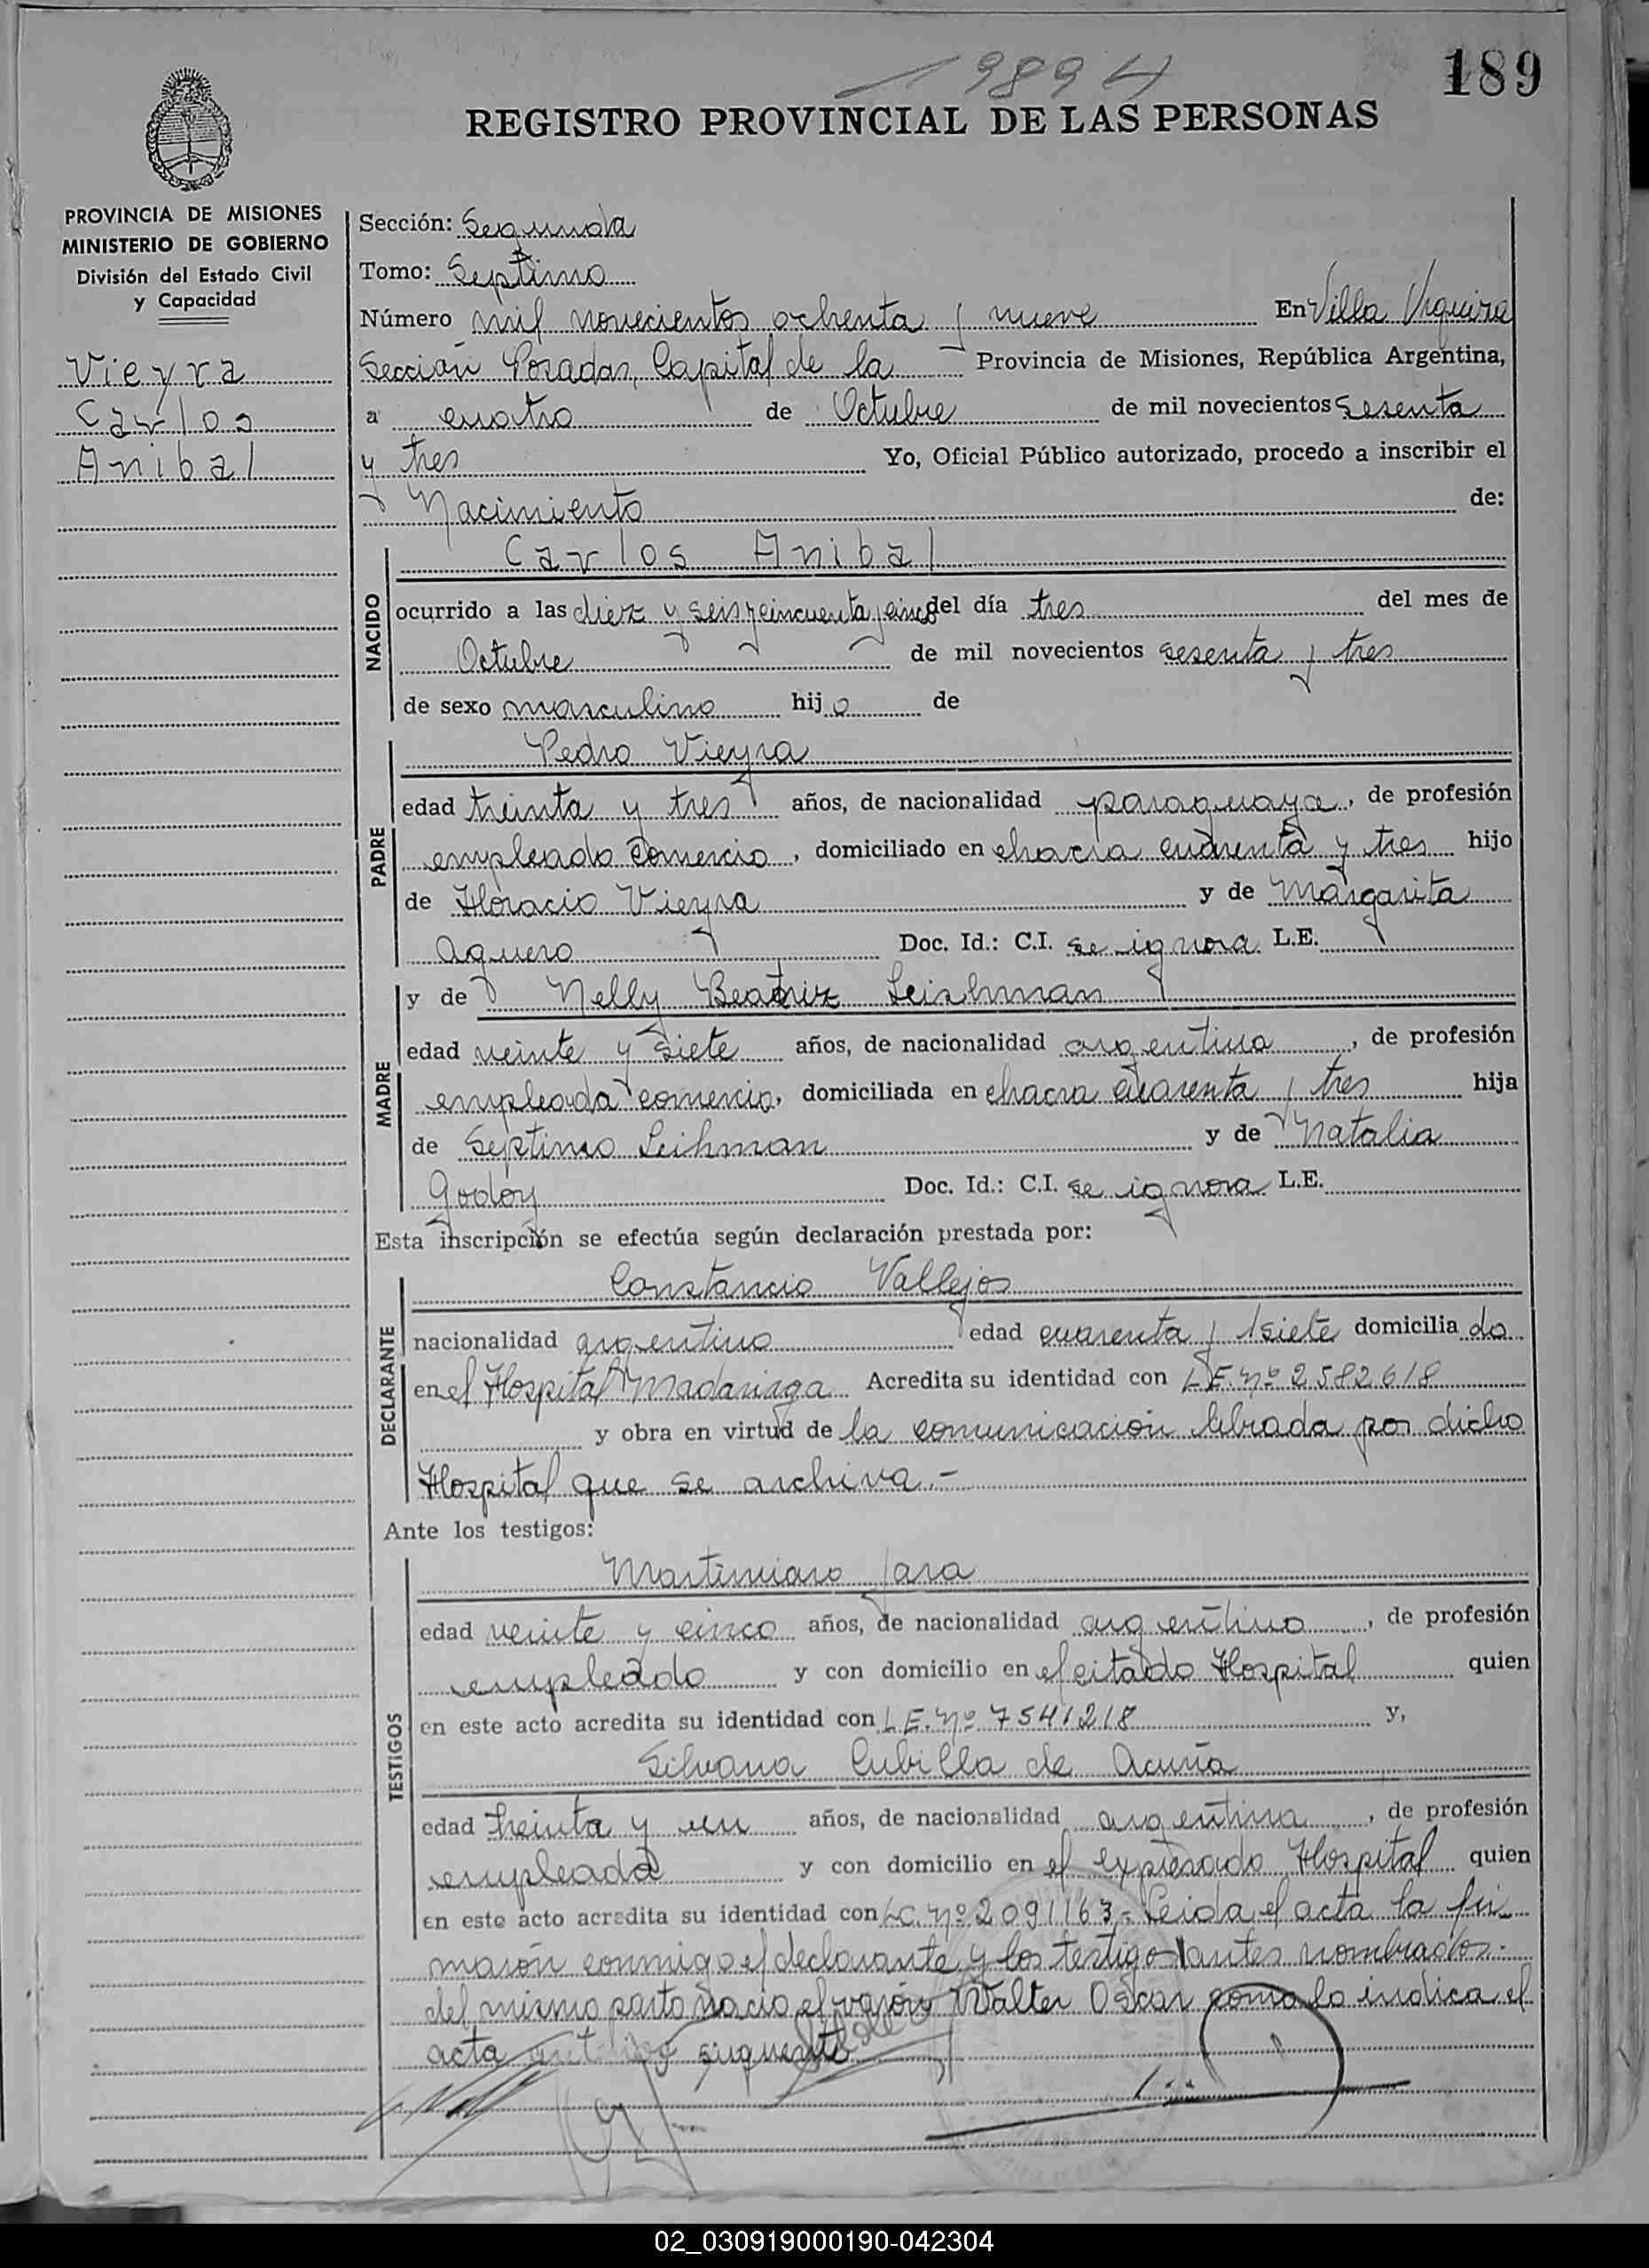 19894
189
REGISTRO PROVINCIAL DE LAS PERSONAS
PROVINCIA DE MISIONES
MINISTERIO DE GOBIERNO
División del Estado Civil
y Capacidad
Vieyra
Carlos
Anibal
Sección: Segunda
Tomo: Septimo
Número mil novecientos ochenta y nueve En Villa Urquiza
Sección Posadas, Capital de la Provincia de Misiones, República Argentina,
a cuatro de Octubre de mil novecientos sesenta
y tres Yo, Oficial Público autorizado, procedo a inscribir el
Nacimiento de:
NACIDO
Carlos Anibal
ocurrido a las diez y seis y cincuenta y cinco del día tres del mes de
Octubre de mil novecientos sesenta y tres
de sexo masculino hijo de
PADRE
Pedro Vieyra
edad treinta y tres años, de nacionalidad paraguaya, de profesión
empleado comercio, domiciliado en chacra cuarenta y tres hijo
de Horacio Vieyra y de Margarita
Aguero Doc. Id.: C.I. se ignora L.E.
MADRE
y de Nelly Beatriz Leishman
edad veinte y siete años, de nacionalidad argentina, de profesión
empleada comercio, domiciliada en chacra cuarenta y tres hija
de Septimo Leihman y de Natalia
Godoy Doc. Id.: C.I. se ignora L.E.
Esta inscripción se efectúa según declaración prestada por:
DECLARANTE
Constancio Vallejos
nacionalidad argentino edad cuarenta y siete domiciliado
en el Hospital Madariaga Acredita su identidad con L.E. nº 2582618
y obra en virtud de la comunicación librada por dicho
Hospital que se archiva.-
Ante los testigos:
TESTIGOS
Martiniano Jara
edad veinte y cinco años, de nacionalidad argentino, de profesión
empleado y con domicilio en el citado Hospital quien
en este acto acredita su identidad con L.E. nº 7541218 y,
Silvana Cubilla de Acuña
edad treinta y un años, de nacionalidad argentina, de profesión
empleada y con domicilio en el expresado Hospital quien
en este acto acredita su identidad con L.C. nº 2091163.- Leida el acta la fir
maron conmigo el declarante y los testigos antes nombrados.-
del mismo parto nacio el varón Walter Oscar como lo indica el
acta siguiente
02_030919000190-042304